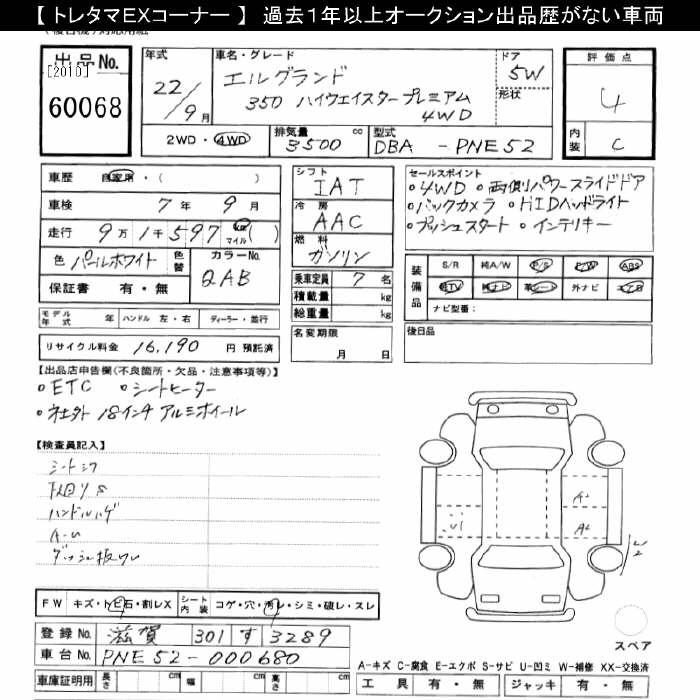 【トレタマEXコーナー】 過去1年以上オークション出品歴がない車両
出品No.
[2010]
60068
年式
22/9月
車名・グレード
エルグランド
350 ハイウエイスタープレミアム
4WD
ドア
5W
形状
評価点
4
内装
C
2WD・4WD
排気量
3500 cc
型式
DBA - PNE52
車歴 自家用・( )
車検 7年 9月
走行 9万1千597 km マイル( )
色 パールホワイト 色替
カラーNo. QAB
保証書 有・無
シフト
IAT
冷房
AAC
燃料
ガソリン
乗車定員 7名
積載量 kg
総重量 kg
名変期限
月 日
セールスポイント
・4WD ・両側パワースライドドア
・バックカメラ ・HIDヘッドライト
・プッシュスタート ・インテリキー
装備品
S/R 純A/W P/S P/W ABS
純TV 純ナビ 革シート 外ナビ エアB
ナビ型番:
後日品
モデル年式 年 ハンドル 左・右 ディーラー・並行
リサイクル料金 16,190 円 預託済
【出品店申告欄(不良箇所・欠品・注意事項等)】
・ETC ・シートヒーター
・社外 18インチ アルミホイール
【検査員記入】
シートシワ
下回りS
ハンドルハゲ
A・U
ダッシュ板ワレ
U1
A2
A2
FW キズ・トビ石・割レX
シート内装 コゲ・穴・汚レ・シミ・破レ・スレ
登録No. 滋賀 301 す 3289
車台No. PNE52-000680
車庫証明用 長さ cm 幅 cm 高さ cm
スペア
A-キズ C-腐食 E-エクボ S-サビ U-凹ミ W-補修 XX-交換済
工具 有・無 ジャッキ 有・無